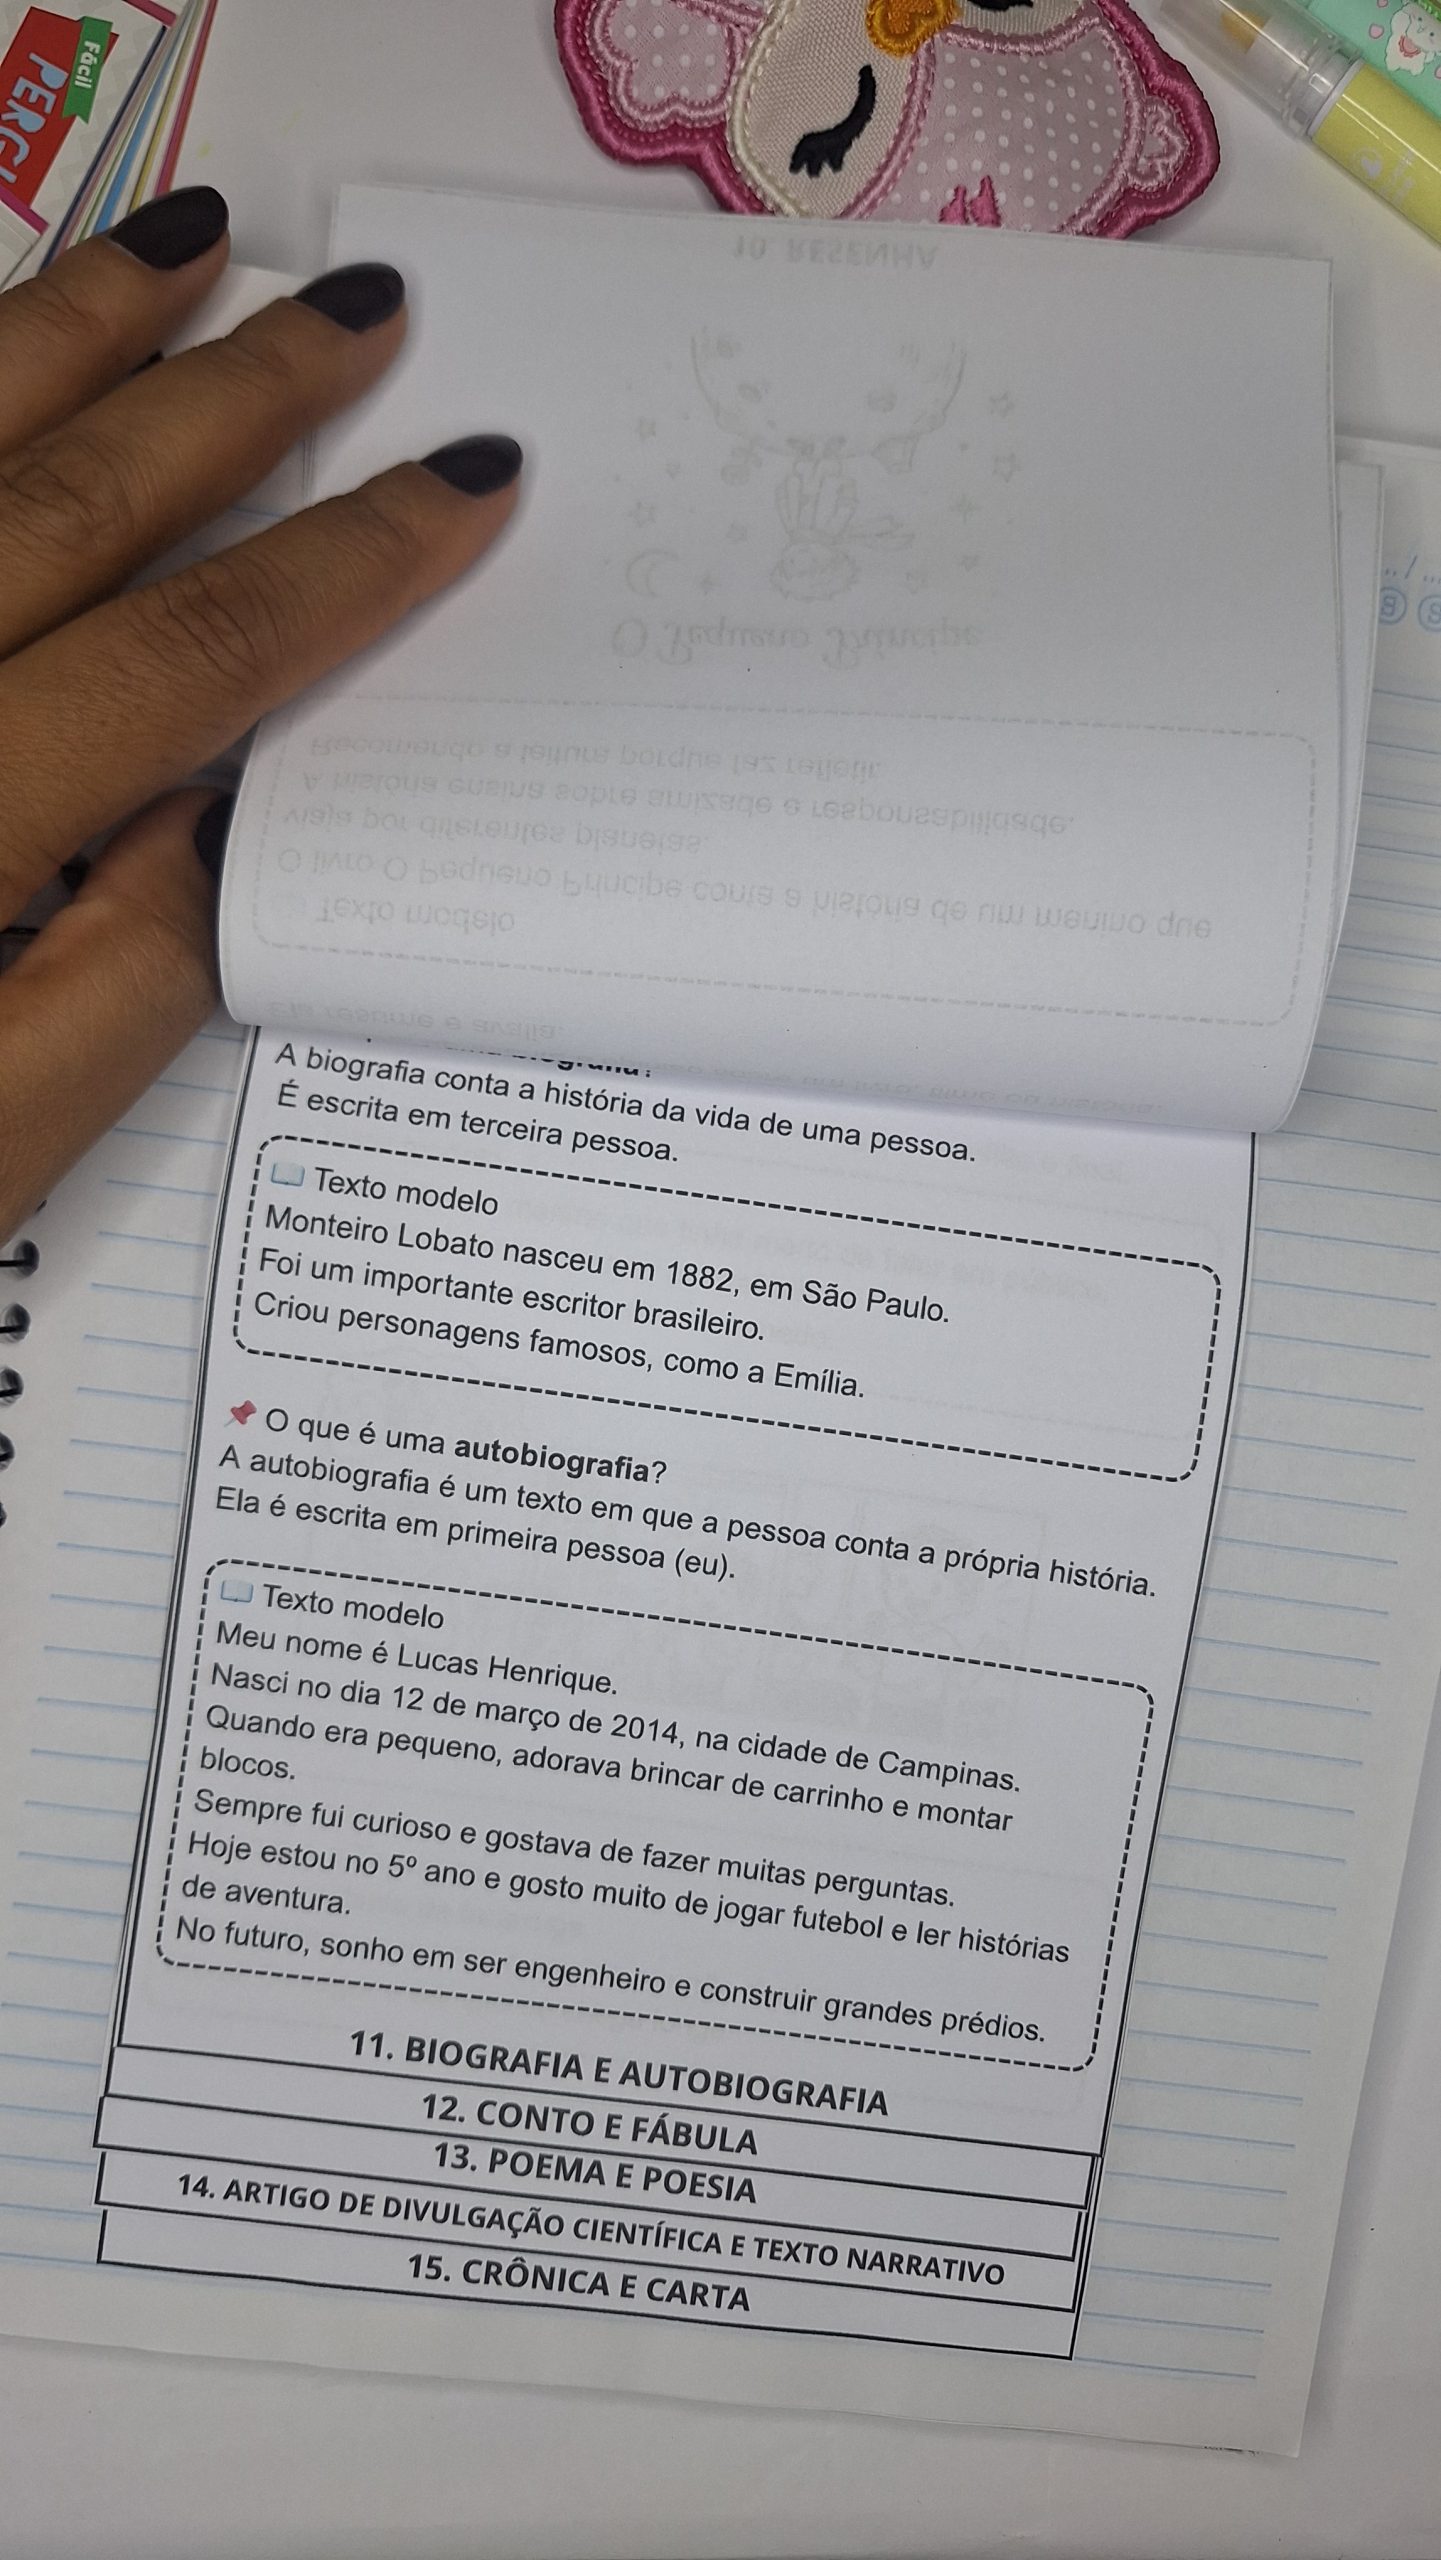 Fácil
A biografia conta a história da vida de uma pessoa.
É escrita em terceira pessoa.
Texto modelo
Monteiro Lobato nasceu em 1882, em São Paulo.
Foi um importante escritor brasileiro.
Criou personagens famosos, como a Emília.
O que é uma autobiografia?
A autobiografia é um texto em que a pessoa conta a própria história.
Ela é escrita em primeira pessoa (eu).
Texto modelo
Meu nome é Lucas Henrique.
Nasci no dia 12 de março de 2014, na cidade de Campinas.
Quando era pequeno, adorava brincar de carrinho e montar
blocos.
Sempre fui curioso e gostava de fazer muitas perguntas.
Hoje estou no 5º ano e gosto muito de jogar futebol e ler histórias
de aventura.
No futuro, sonho em ser engenheiro e construir grandes prédios.
11. BIOGRAFIA E AUTOBIOGRAFIA
12. CONTO E FÁBULA
13. POEMA E POESIA
14. ARTIGO DE DIVULGAÇÃO CIENTÍFICA E TEXTO NARRATIVO
15. CRÔNICA E CARTA